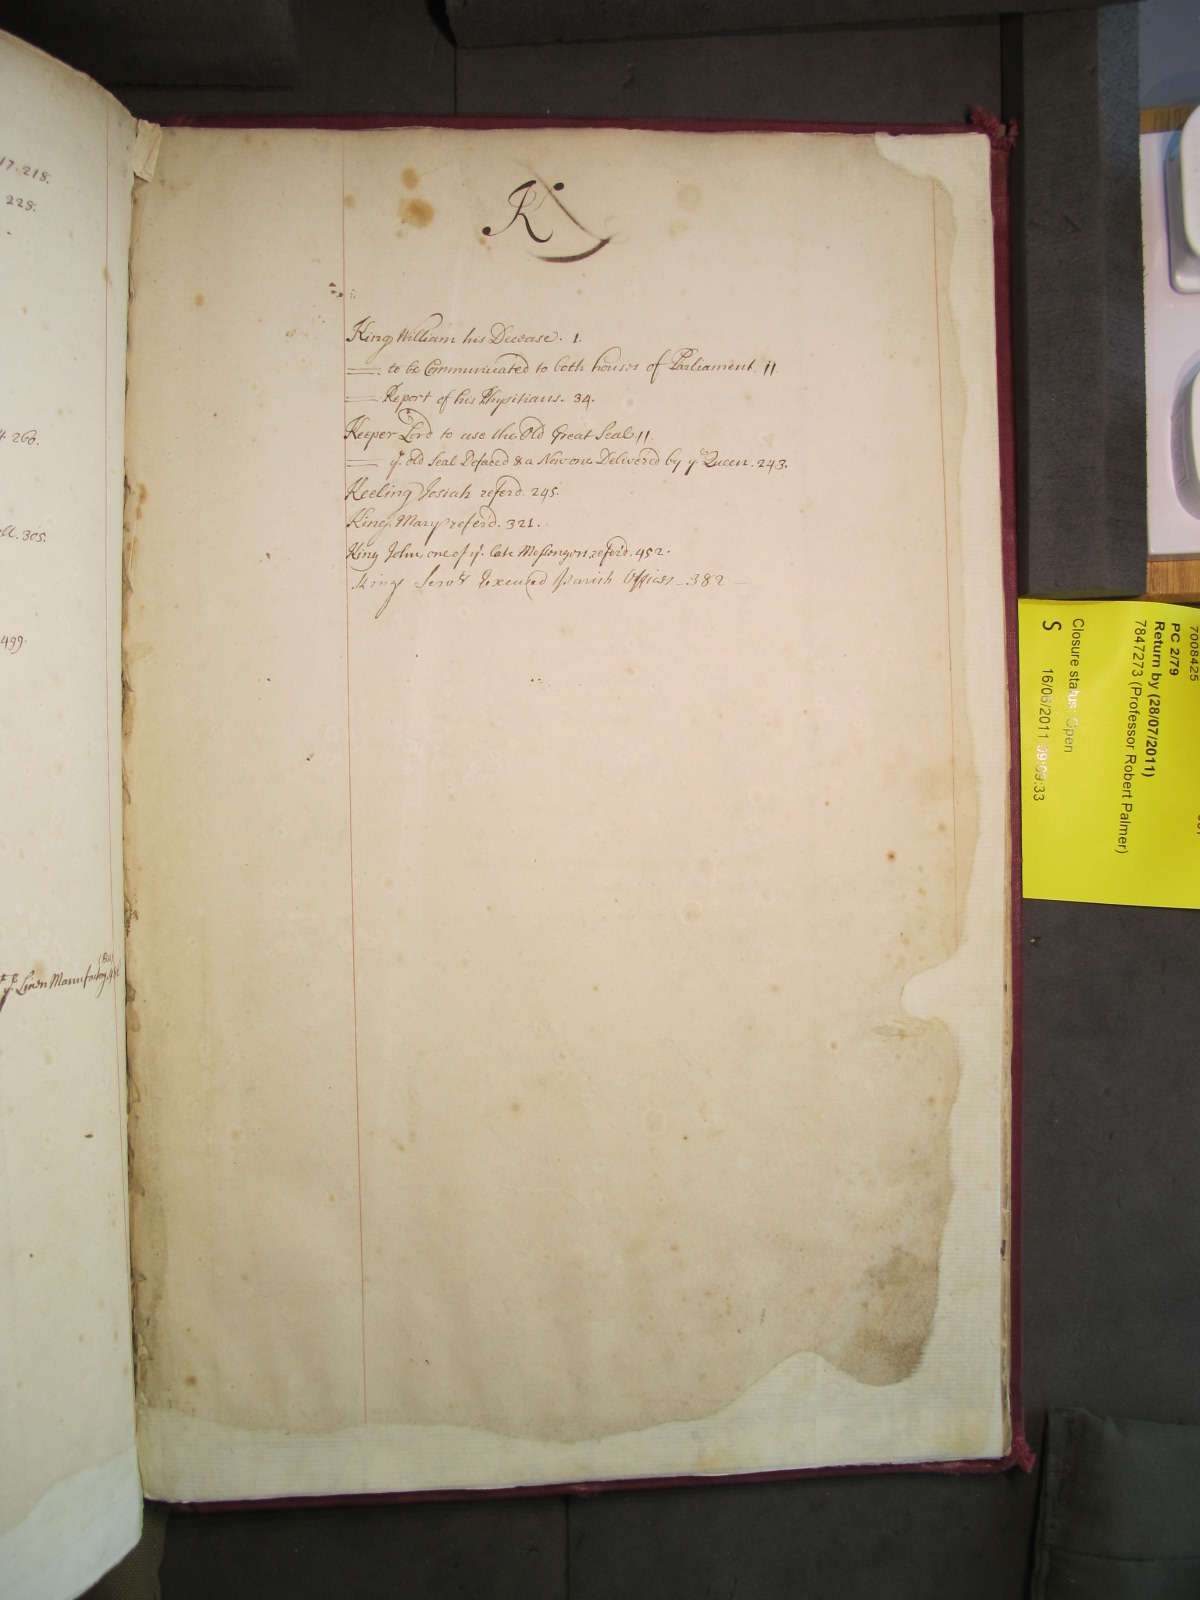 17.218.
228.
260.
305.
499.
ye. Linen Manufactory
K
King William his Decease. 1.
== to be Communicated to both houses of Parliament. 11
== Report of his Physitians. 34.
Keeper Lord to use the Old Great Seal 11
== ye. old Seal Defaced & a New one Delivered by ye Queen. 243.
Keeling Josiah referd. 245.
King Mary referd. 321.
King John one of ye. late Messengers referd. 452.
Kings Servts Excused Parish Offices - 382 -
7008425
PC 2/79
Return by (28/07/2011)
7847273 (Professor Robert Palmer)
Closure status: Open
S 16/06/2011 09:09:33